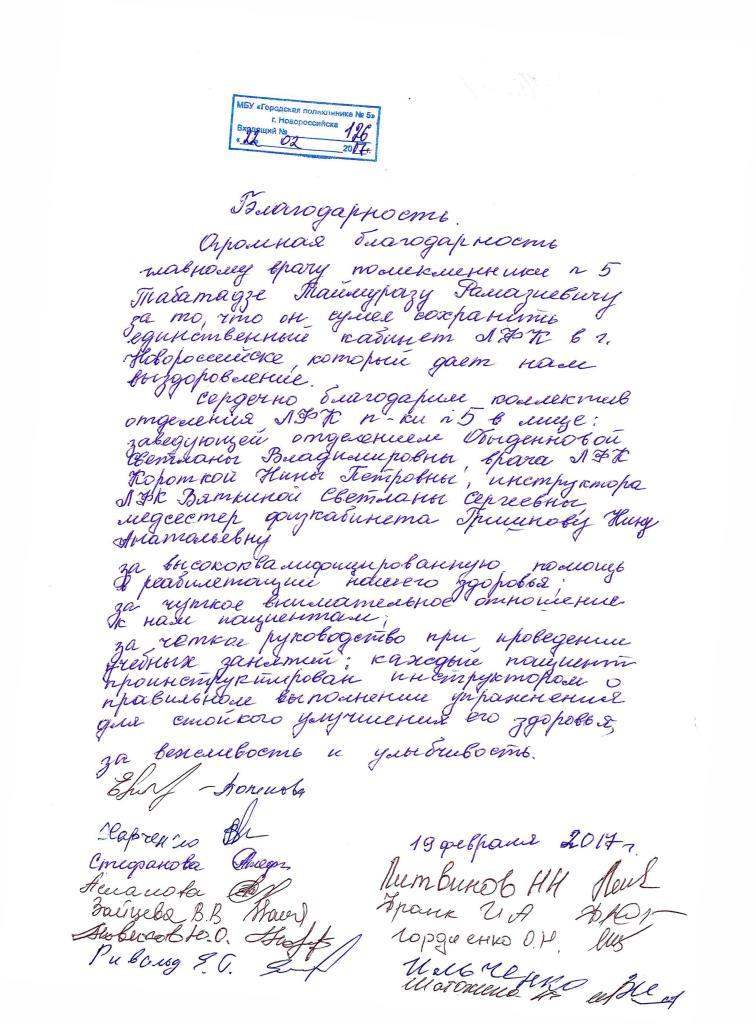 МБУ «Городская поликлиника № 5»
г. Новороссийска
Входящий № 126
« 22 » 02 2017г.
Благодарность.
Огромная благодарность
главному врачу поликлинники №5
Табатадзе Таймуразу Рамазиевичу
за то, что он сумел сохранить
единственный кабинет ЛФК в г.
Новороссийске, который дает нам
выздоровление.
Сердечно благодарим коллектив
отделения ЛФК п-ки №5 в лице:
заведующей отделением Обыденновой
Светланы Владимировны, врача ЛФК
Короткой Нины Петровны, инструктора
ЛФК Вяткиной Светланы Сергеевны,
медсестер физкабинета Гришнову Нину
Анатольевну
за высококвалифицированную помощь
в реабилетации нашего здоровья;
за чуткое внимательное отношение
к нам пациентам;
за четкое руководство при проведении
учебных занятий: каждый пациент
проинструктирован инструктором о
правильном выполнении упражнения
для стойкого улучшения его здоровья,
за вежливость и улыбчивость.
Харченко
19 февраля 2017 г.
Стефанова
Литвинов НН
Асланова
Франк И А
Зайцева В.В
Гордиенко О.Н.
Ю.О.
Ривольд
Ильченко